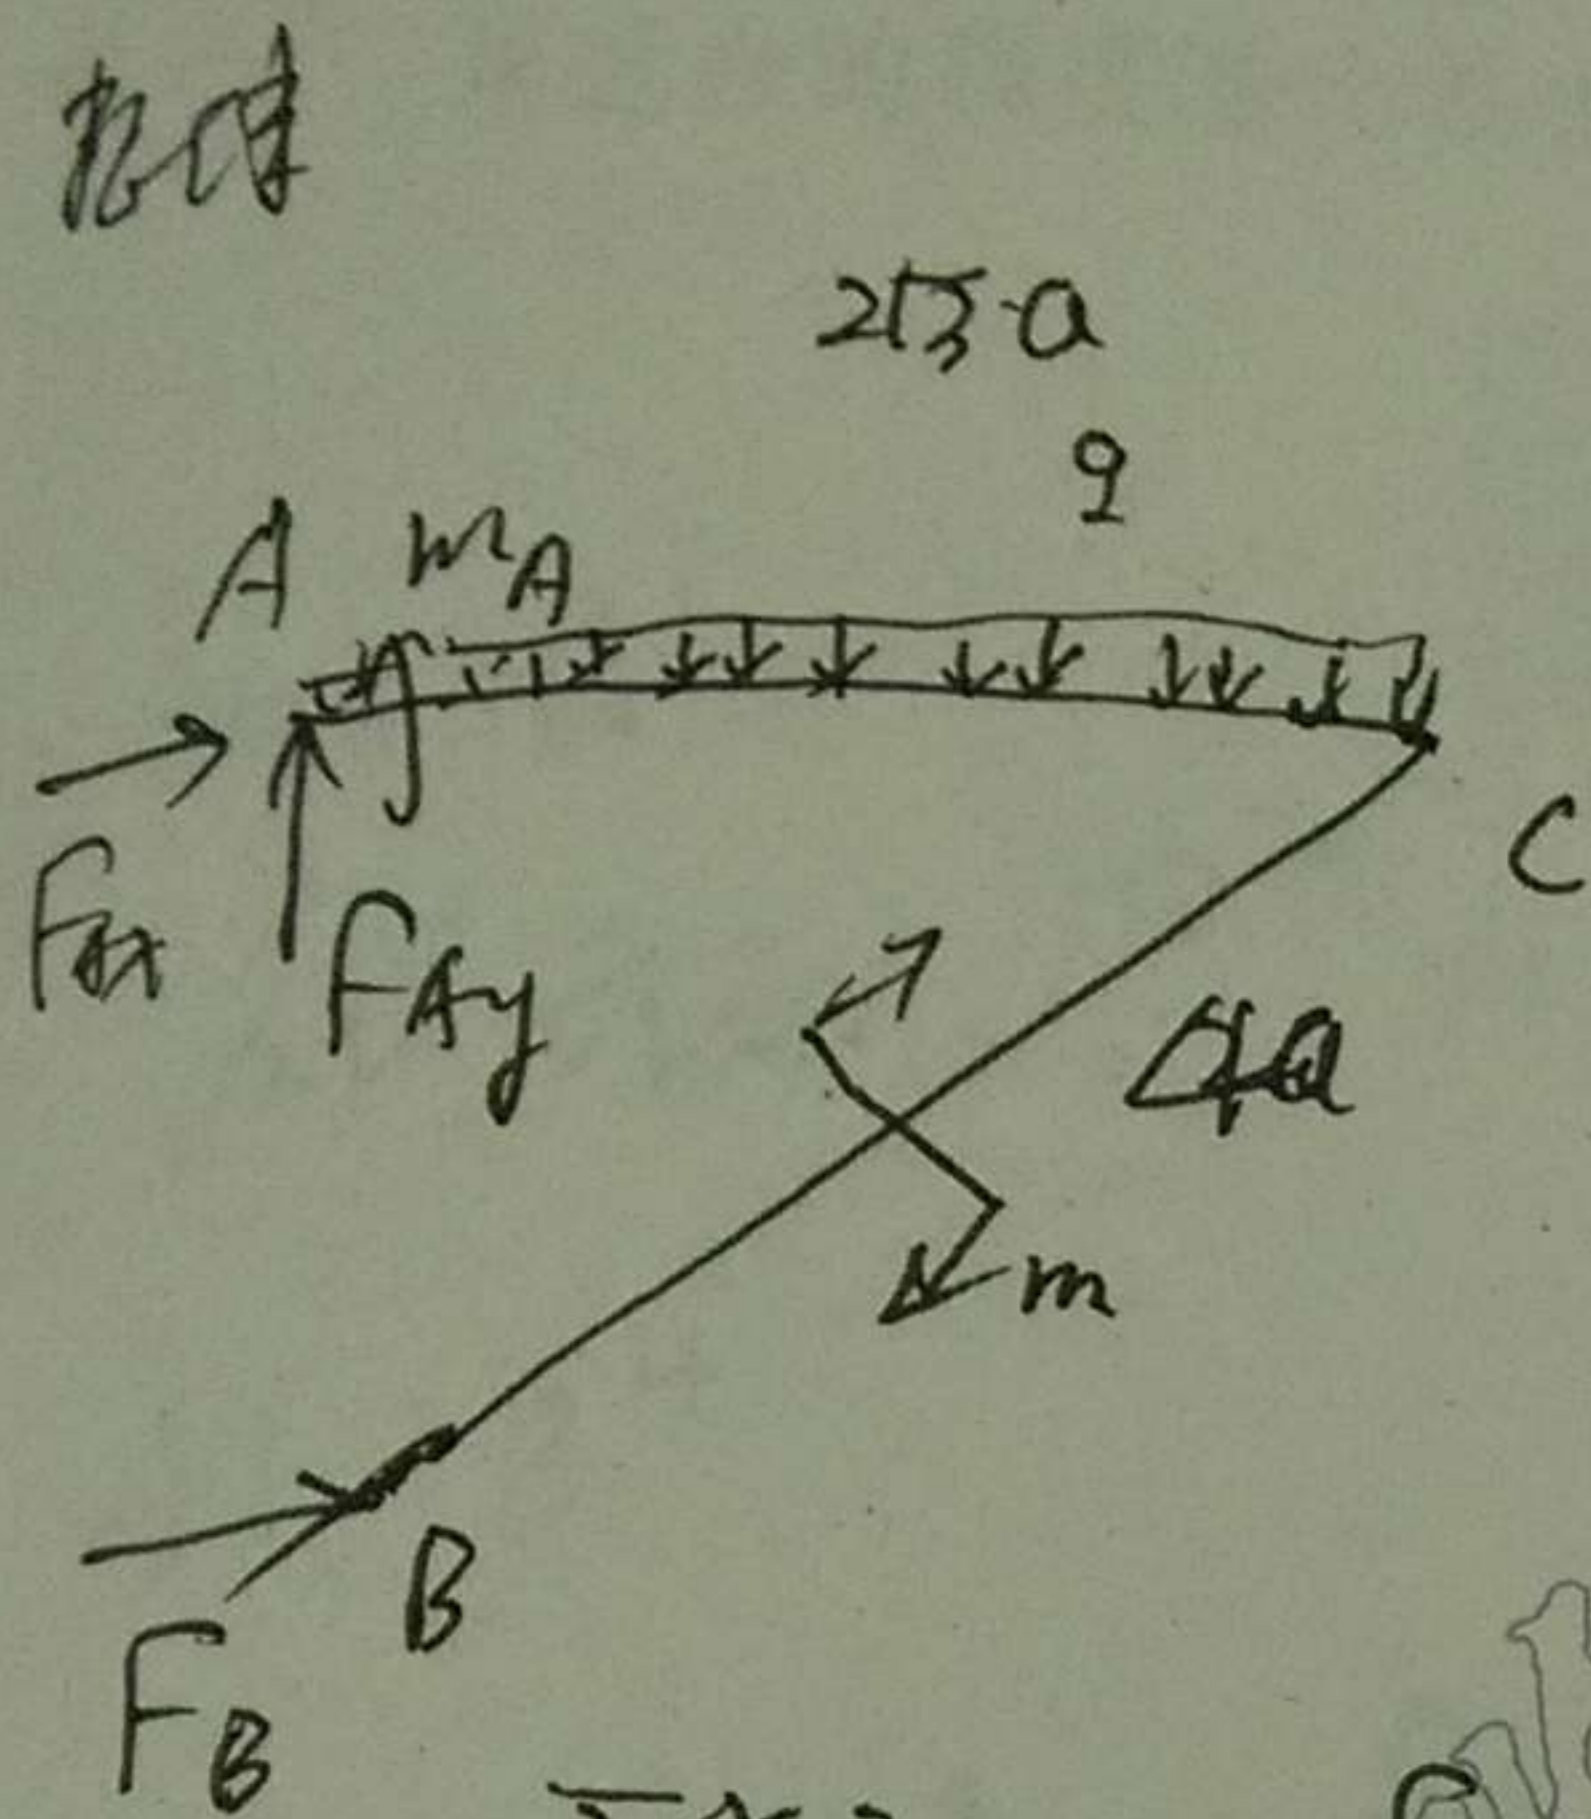 整体
2√3·a
q
A mA
FAx
FAy
C
4a
m
B
FB